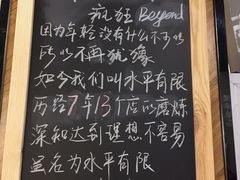 疯狂 Beyond
因为年轻没有什么不可以
所以不再犹豫
如今我们叫水平有限
历经7年13个店的磨炼
深知达到理想不容易
并名为水平有限